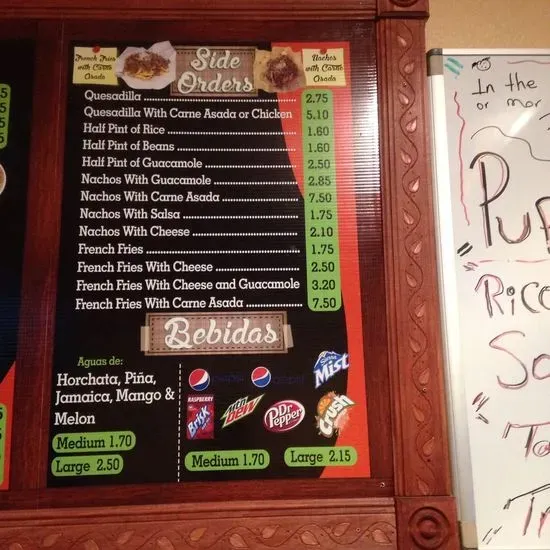 French Fries
with Carne
Asada
Side
Orders
Nachos
with Carne
Asada
Quesadilla 2.75
Quesadilla With Carne Asada or Chicken 5.10
Half Pint of Rice 1.60
Half Pint of Beans 1.60
Half Pint of Guacamole 2.50
Nachos With Guacamole 2.85
Nachos With Carne Asada 7.50
Nachos With Salsa 1.75
Nachos With Cheese 2.10
French Fries 1.75
French Fries With Cheese 2.50
French Fries With Cheese and Guacamole 3.20
French Fries With Carne Asada 7.50
Bebidas
Aguas de:
Horchata, Piña,
Jamaica, Mango &
Melon
Medium 1.70
Large 2.50
Mist
RASPBERRY
Brisk
Mtn
DEW
Dr
Pepper
Crush
Medium 1.70
Large 2.15
In the
or mor
Rice